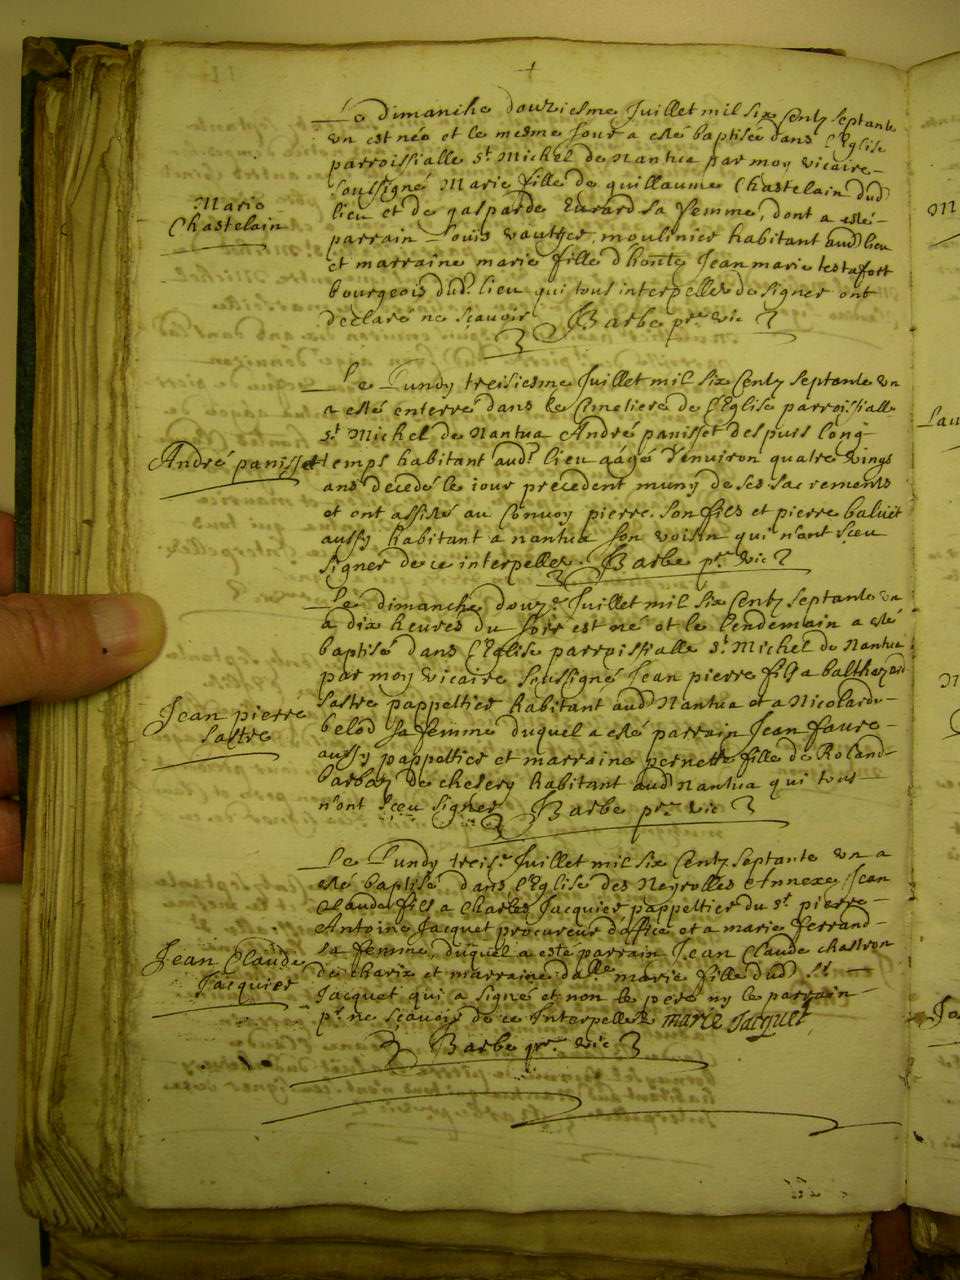 Le dimanche douziesme Juillet mil six Centz septante
un est née et le mesme Jour a esté baptisée dans l'Eglise
parroissialle St Michel de Nantua par moy vicaire
soussigné Marie fille de guillaume Chastelain dud
Marie
Chastelain
lieu et de gasparde Eurard sa femme, dont a esté
parrain Louis vautier, moulinier habitant aud lieu
et marraine marie fille d'honte Jean marie testafort
bourgeois dud. lieu qui tous interpelles de signer ont
declaré ne sçavoir Barbe pr. vic
Le Lundy treisiesme Juillet mil six Centz septante un
a esté enterré dans le Cimetiere de l'Eglise parroissialle
St Michel de Nantua André panisset despuis long
André panisset
temps habitant aud. lieu aagé d'environ quatre vings
ans decedé le iour precedent muny de ses sacrements
et ont assisté au Convoy pierre son fils et pierre baluet
aussy habitant a nantua son voisin qui n'ont sceu
signer de ce interpelles Barbe pr. vic
Le dimanche douze. Juillet mil six Centz septante un
a dix heures du soir est né et le lendemain a esté
baptisé dans l'Eglise parroissialle St Michel de Nantua
par moy vicaire soussigné Jean pierre fils a balthazard
Jean pierre
Sastre
Sastre pappettier habitant aud Nantua et a Nicolarde
belod sa femme duquel a esté parrain Jean faure
aussy pappettier et marraine pernette fille de Roland
barbaz de chesery habitant aud Nantua qui tous
n'ont sçeu signer Barbe pr. vic
Le Lundy treis. Juillet mil six Centz septante un a
esté baptisé dans l'Eglise des Neyrolles Annexe, Jean
Claude fils a Charles Jacquier pappettier du Sr pierre
Antoine Jacquet procureur d'office et a marie ferrand
Jean Claude
Jacquier
sa femme, duquel a esté parrain Jean Claude chastron
de charix et marraine dalle marie fille dud Sr
Jacquet qui a signé et non le pere ny le parrain
pr. ne sçavoir de ce Interpelles marie Jacquet
Barbe pr. vic